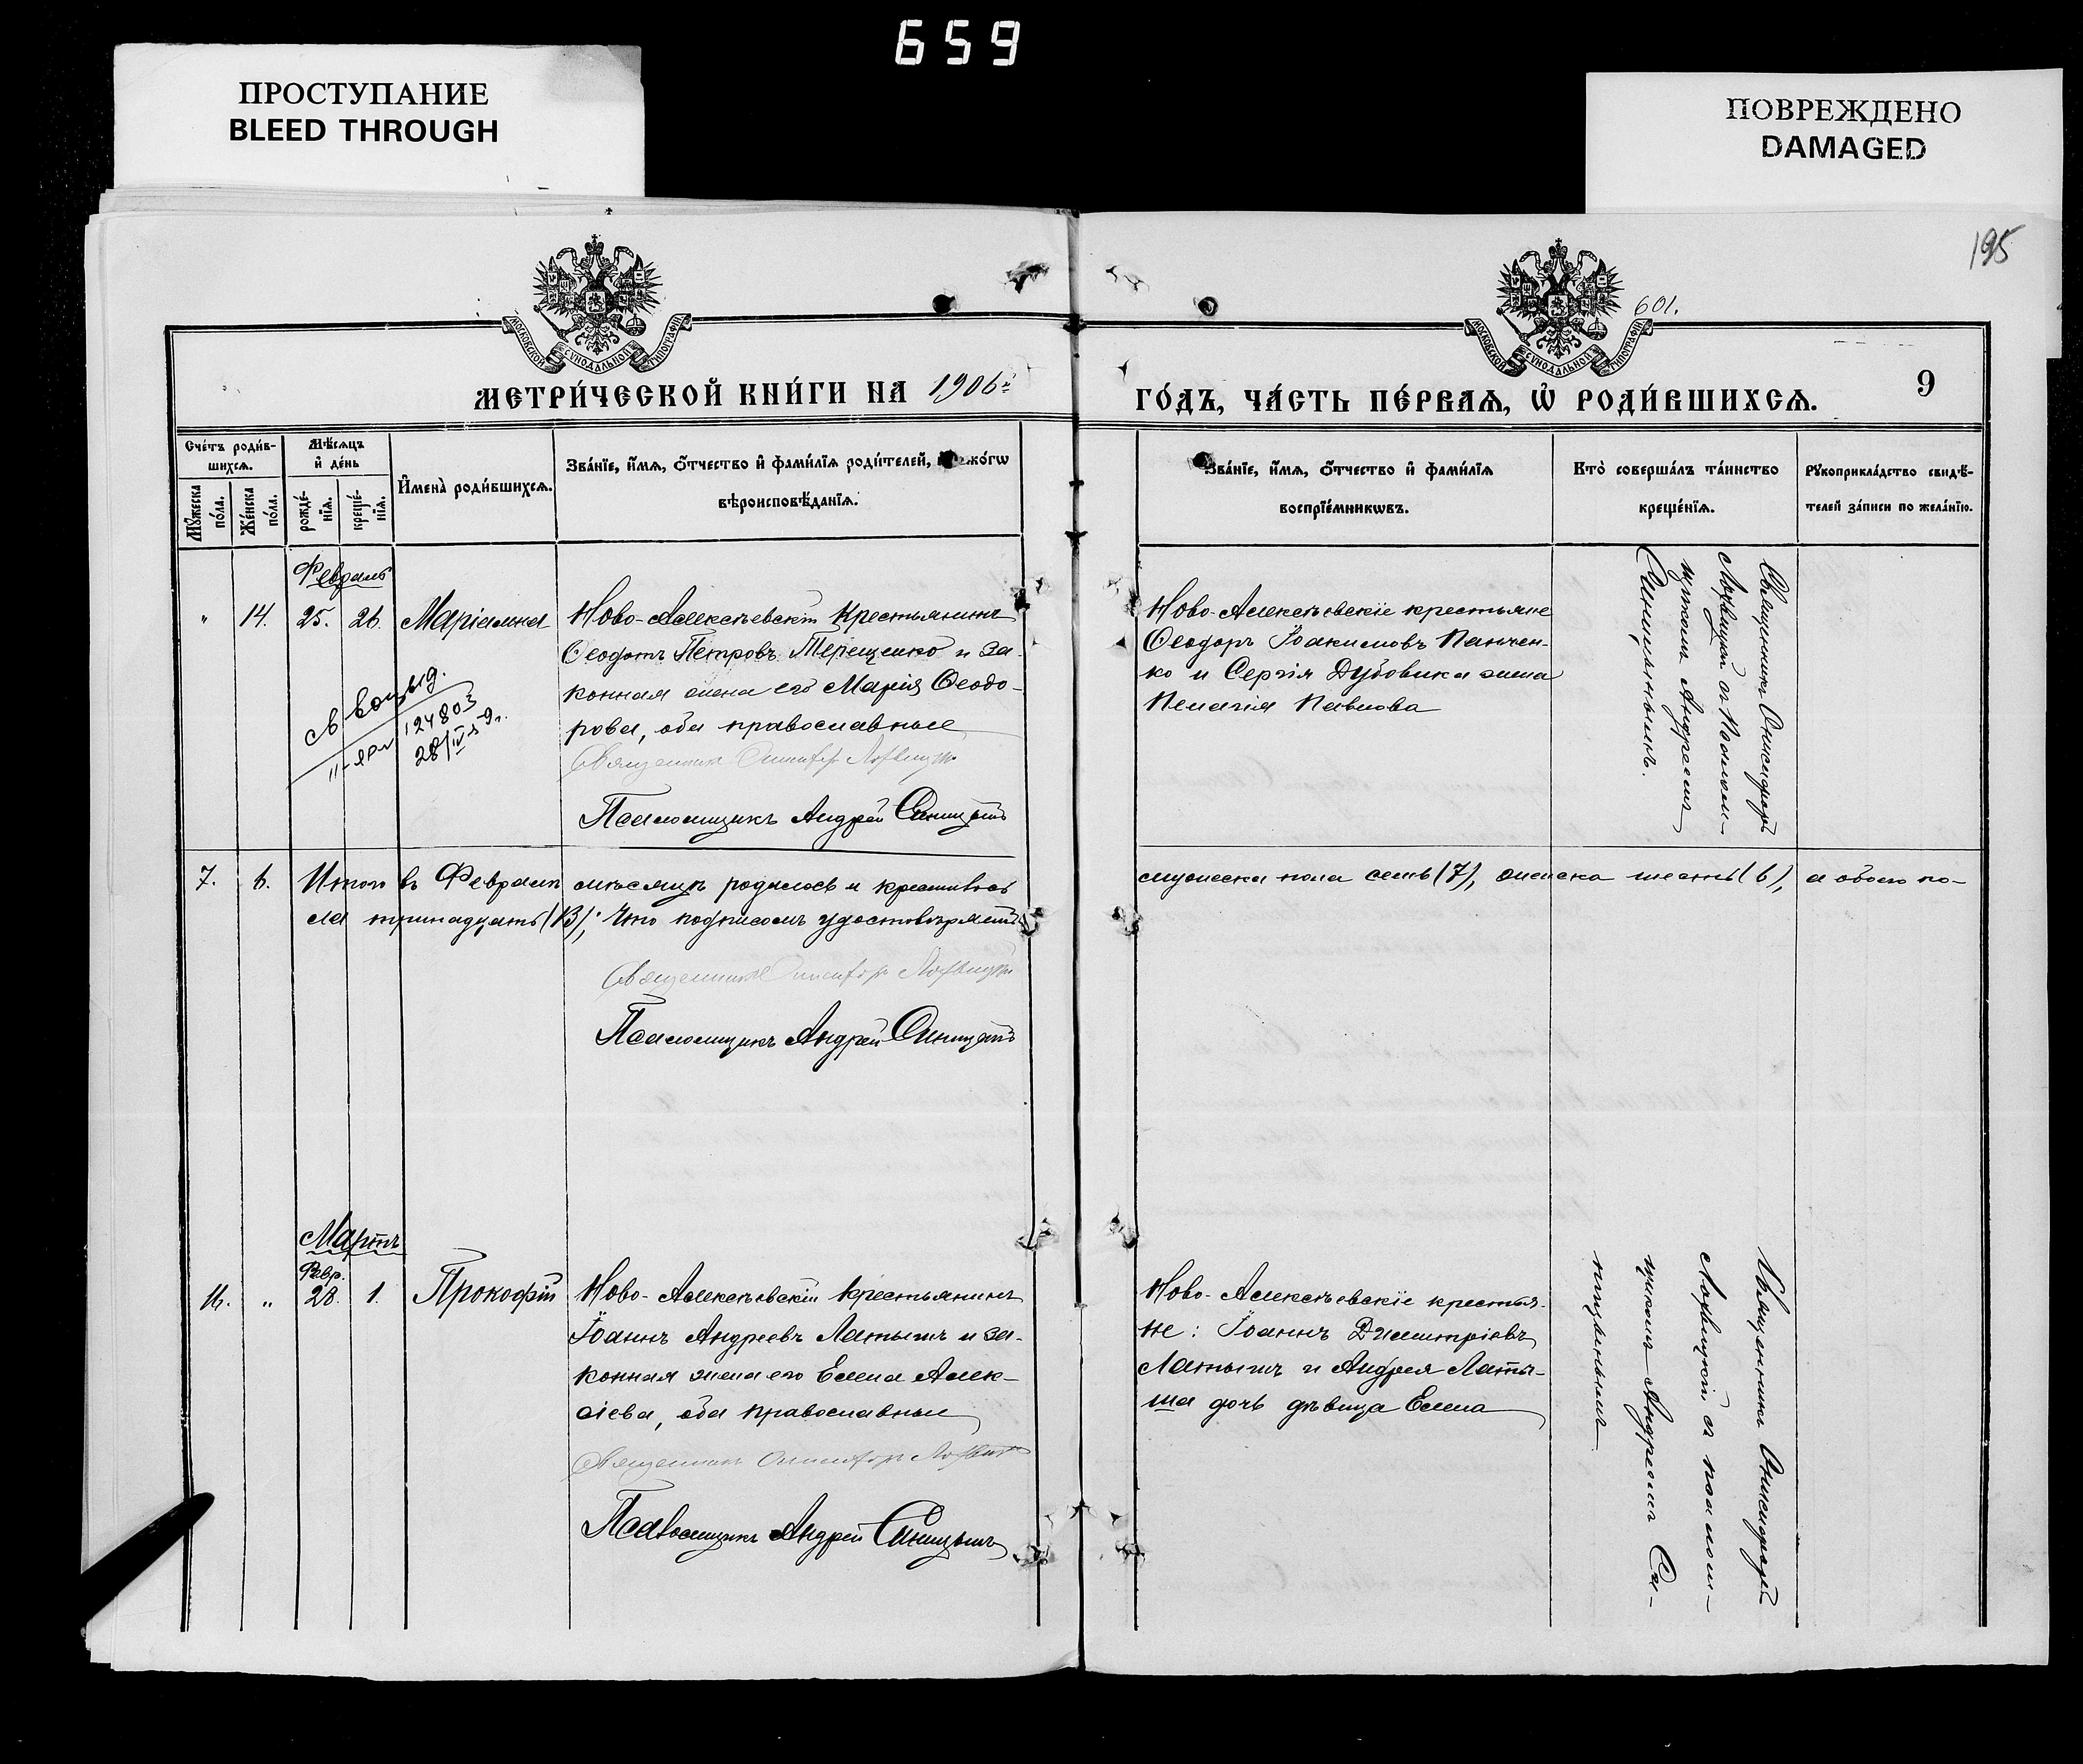 659
ПРОСТУПАНИЕ
BLEED THROUGH
ПОВРЕЖДЕНО
DAMAGED
195
601.
МОСКОВСКОЙ СѴНОДАЛЬНОЙ ТИПОГРАФІИ
МОСКОВСКОЙ СѴНОДАЛЬНОЙ ТИПОГРАФІИ
МЕТРИ́ЧЕСКОЙ КНИ́ГИ НА 1906й
ГО́ДЪ, ЧА́СТЬ ПЕ́РВАѦ, Ѡ҆ РОДИ́ВШИХСѦ.
9
Сче́тъ роди́в-
шихсѧ.
Мꙋ́жеска по́ла.
Же́нска по́ла.
Мѣ́сѧцъ
и҆ де́нь
рожде́-
нїѧ.
креще́-
нїѧ.
И҆мена̀ роди́вшихсѧ.
Зва́нїе, и҆́мѧ, ѻ҆́тчество и҆ фами́лїѧ роди́телей, и҆ како́гѡ
вѣроисповѣ́данїѧ.
Зва́нїе, и҆́мѧ, ѻ҆́тчество и҆ фами́лїѧ
воспрїе́мникѡвъ.
Кто̀ соверша́лъ та́инство
креще́нїѧ.
Рꙋкоприкла́дство свидѣ́-
телей за́писи по жела́нїю.
Февраль
" 14. 25. 26. Маріамна
Ново-Алексѣевскій крестьянинъ
Ѳеодотъ Петровъ Терещенко и за-
конная жена его Марія Ѳеодо-
рова, оба православные
Священникъ Онисифоръ Лохвицкій
Псаломщикъ Андрей Синицынъ
124803
28/IV 59г.
Ново-Алексѣевскіе крестьяне
Ѳеодоръ Іоакимовъ Панчен-
ко и Сергія Дубовика жена
Пелагія Павлова
Священникъ Онисифоръ
Лохвицкій съ Псалом-
щикомъ Андреемъ
Синицынымъ.
7. 6. Итого въ Февралѣ мѣсяцѣ родилось и крестилось
мужеска пола семь (7), женска шесть (6), а обоего по-
ла тринадцать (13); Что подписомъ удостовѣряемъ
Священникъ Онисифоръ Лохвицкій
Псаломщикъ Андрей Синицынъ
Мартъ
Февр.
" 28. 1. Прокофій
Ново-Алексѣевскій крестьянинъ
Іоаннъ Андреевъ Латышъ и за-
конная жена его Елена Алек-
сіева, оба православные
Священникъ Онисифоръ Лохвицкій
Псаломщикъ Андрей Синицынъ
Ново-Алексѣевскіе крестья-
не: Іоаннъ Димитріевъ
Латышъ и Андрея Латы-
ша дочь дѣвица Елена
Священникъ Онисифоръ
Лохвицкій съ псалом-
щикомъ Андреемъ Си-
ницынымъ